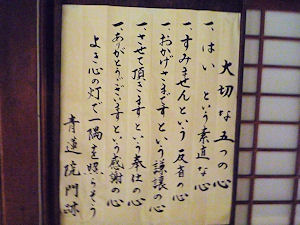 大切な五つの心
一、はい という素直な心
一、すみませんという 反省の心
一、おかげさまですという謙譲の心
一、させて頂きますという奉仕の心
一、ありがとうございますという感謝の心
よき心の灯で一隅を照らそう
青蓮院門跡